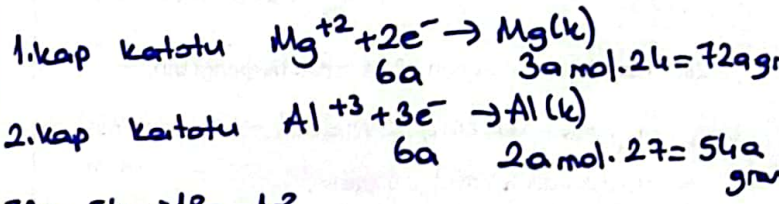 1.kap katotu Mg+2 + 2e- → Mg(k)
6a 3a mol.24=72agr
2.kap katotu Al+3 + 3e- → Al(k)
6a 2a mol.27=54a
gram